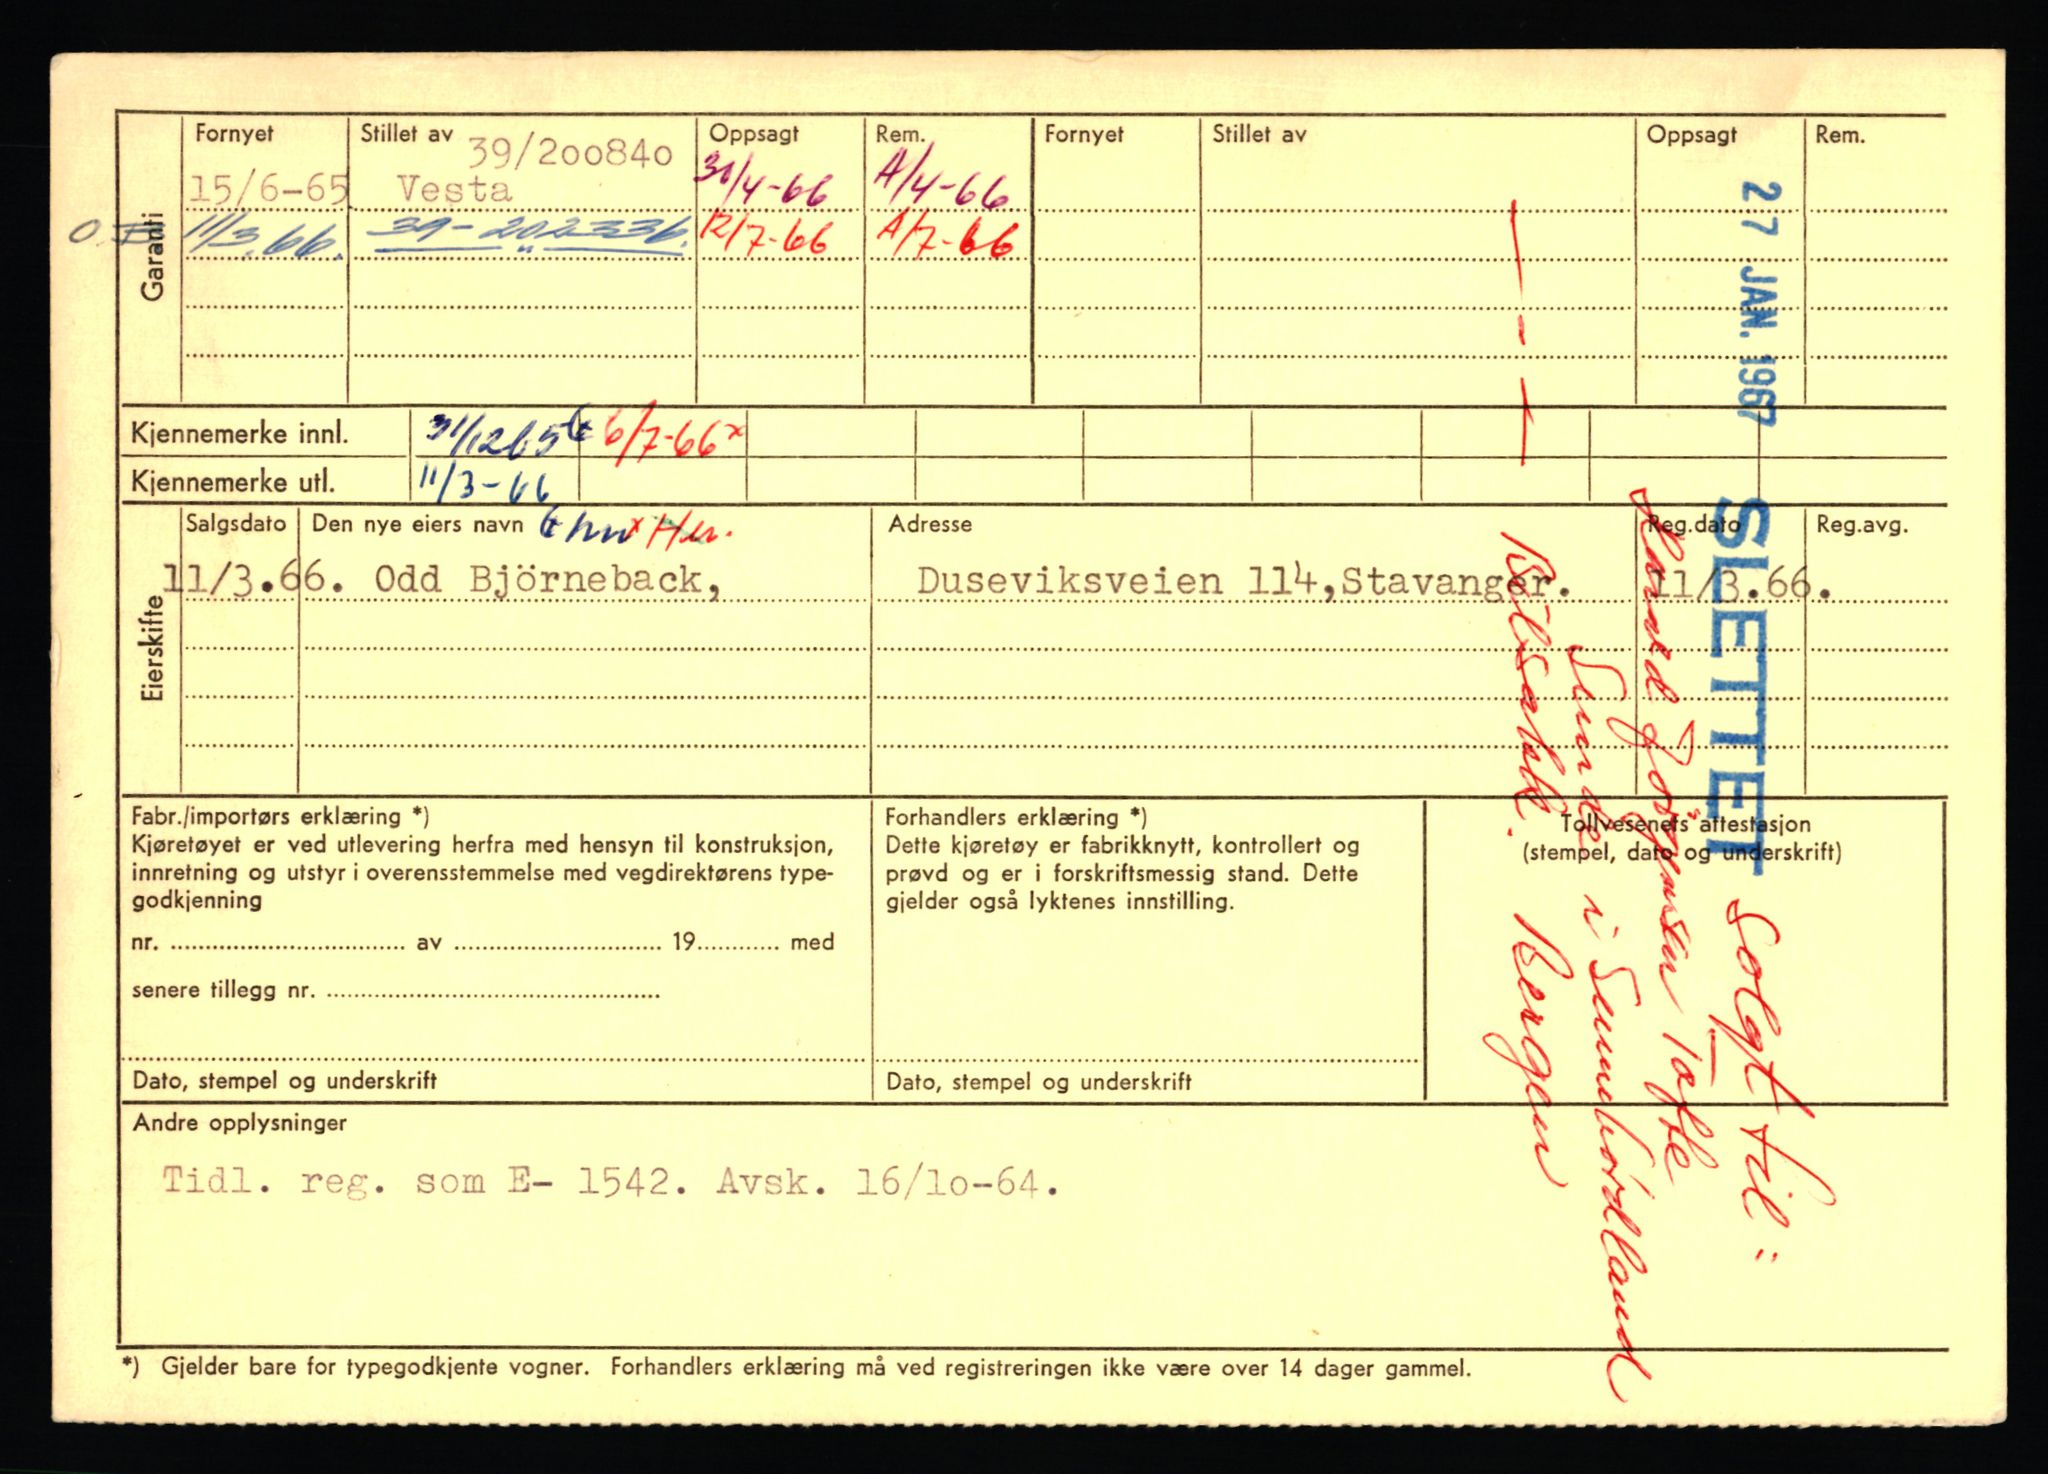 Garanti
Fornyet Stillet av Oppsagt Rem. Fornyet Stillet av Oppsagt Rem.
39/200840
15/6-65 Vesta 30/4-66 A/4-66
11/3.66. 39-202336. 12/7-66 A/7-66
Kjennemerke innl. 31/12 65 6/7-66 x
Kjennemerke utl. 11/3-66
Eierskifte
Salgsdato Den nye eiers navn x Her. Adresse Reg.dato Reg.avg.
11/3.66. Odd Björneback, Duseviksveien 114,Stavanger. 11/3.66.
27 JAN. 1967 SLETTET
Solgt til:
Torgunsen Tofte
Sunde i Sunnhordland
Bilsakk. Bergen
Fabr./importørs erklæring *)
Kjøretøyet er ved utlevering herfra med hensyn til konstruksjon,
innretning og utstyr i overensstemmelse med vegdirektørens type-
godkjenning
nr. av 19 med
senere tillegg nr.
Dato, stempel og underskrift
Forhandlers erklæring *)
Dette kjøretøy er fabrikknytt, kontrollert og
prøvd og er i forskriftsmessig stand. Dette
gjelder også lyktenes innstilling.
Dato, stempel og underskrift
Tollvesenets attestasjon
(stempel, dato og underskrift)
Andre opplysninger
Tidl. reg. som E- 1542. Avsk. 16/10-64.
*) Gjelder bare for typegodkjente vogner. Forhandlers erklæring må ved registreringen ikke være over 14 dager gammel.